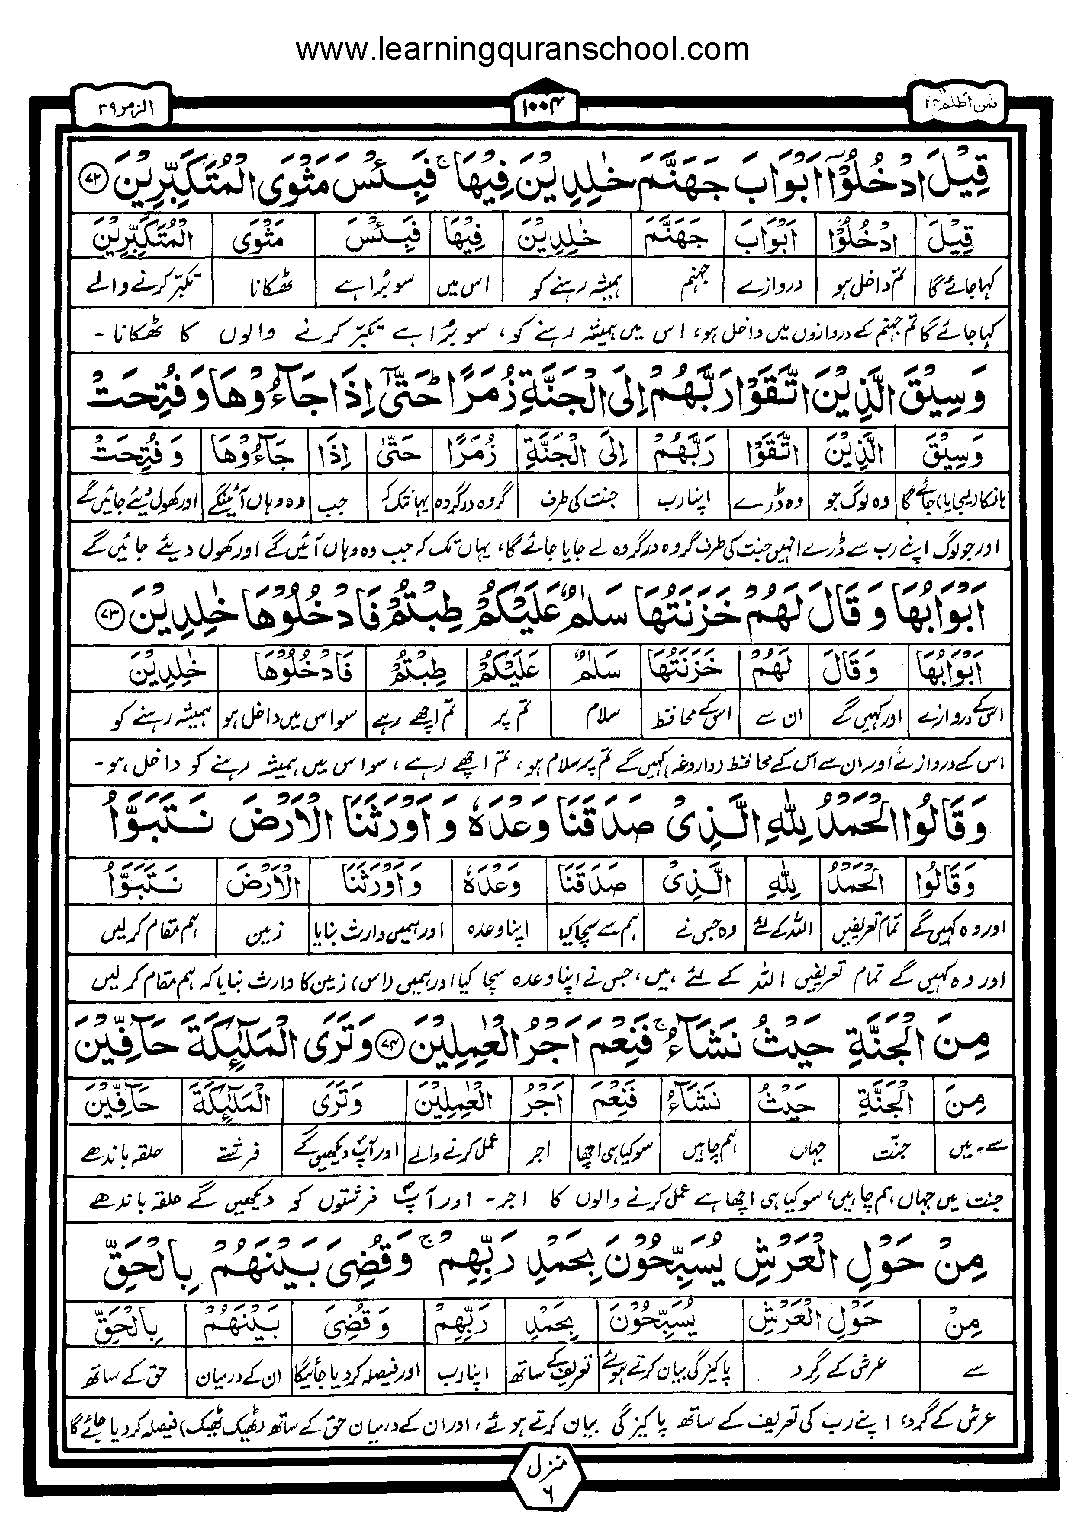 www.learningquranschool.com
فمن اظلم ۲۴
۱۰۰۴
الزمر ۳۹
قِيْلَ ادْخُلُوْٓا اَبْوَابَ جَهَنَّمَ خٰلِدِيْنَ فِيْهَا ۚ فَبِئْسَ مَثْوَى الْمُتَكَبِّرِيْنَ ۷۲
قِيْلَ ادْخُلُوْٓا اَبْوَابَ جَهَنَّمَ خٰلِدِيْنَ فِيْهَا فَبِئْسَ مَثْوَى الْمُتَكَبِّرِيْنَ
کہا جائے گا تم داخل ہو دروازے جہنم ہمیشہ رہنے کو اس میں سو بُرا ہے ٹھکانا تکبّر کرنے والے
کہا جائے گا تم جہنم کے دروازوں میں داخل ہو، اس میں ہمیشہ رہنے کو، سو بُرا ہے تکبّر کرنے والوں کا ٹھکانا -
وَسِيْقَ الَّذِيْنَ اتَّقَوْا رَبَّهُمْ اِلَى الْجَنَّةِ زُمَرًا ؕ حَتّٰٓى اِذَا جَآءُوْهَا وَفُتِحَتْ
وَسِيْقَ الَّذِيْنَ اتَّقَوْا رَبَّهُمْ اِلَى الْجَنَّةِ زُمَرًا حَتّٰى اِذَا جَآءُوْهَا وَفُتِحَتْ
ہانکا (لیجایا) جائے گا وہ لوگ جو وہ ڈرے اپنا رب جنت کی طرف گروہ در گروہ یہانتک کہ جب وہ وہاں آئینگے اور کھول دیئے جائیں گے
اور جو لوگ اپنے رب سے ڈرے انہیں جنت کی طرف گروہ در گروہ لے جایا جائے گا، یہاں تک کہ جب وہ وہاں آئیں گے اور کھول دیئے جائیں گے
اَبْوَابُهَا وَقَالَ لَهُمْ خَزَنَتُهَا سَلٰمٌ عَلَيْكُمْ طِبْتُمْ فَادْخُلُوْهَا خٰلِدِيْنَ ۷۳
اَبْوَابُهَا وَقَالَ لَهُمْ خَزَنَتُهَا سَلٰمٌ عَلَيْكُمْ طِبْتُمْ فَادْخُلُوْهَا خٰلِدِيْنَ
اس کے دروازے اور کہیں گے ان سے اس کے محافظ سلام تم پر تم اچھے رہے سو اس میں داخل ہو ہمیشہ رہنے کو
اس کے دروازے اور ان سے اس کے محافظ (داروغہ) کہیں گے تم پر سلام ہو، تم اچھے رہے، سو اس میں ہمیشہ رہنے کو داخل ہو -
وَقَالُوا الْحَمْدُ لِلّٰهِ الَّذِىْ صَدَقَنَا وَعْدَهٗ وَاَوْرَثَنَا الْاَرْضَ نَتَبَوَّاُ
وَقَالُوا الْحَمْدُ لِلّٰهِ الَّذِىْ صَدَقَنَا وَعْدَهٗ وَاَوْرَثَنَا الْاَرْضَ نَتَبَوَّاُ
اور وہ کہیں گے تمام تعریفیں اللہ کے لئے وہ جس نے ہم سے سچا کیا اپنا وعدہ اور ہمیں وارث بنایا زمین ہم مقام کر لیں
اور وہ کہیں گے تمام تعریفیں اللہ کے لئے ہیں، جس نے اپنا وعدہ سچا کیا اور ہمیں (اس) زمین کا وارث بنایا کہ ہم مقام کر لیں
مِنَ الْجَنَّةِ حَيْثُ نَشَآءُ ۚ فَنِعْمَ اَجْرُ الْعٰمِلِيْنَ ۷۴ وَتَرَى الْمَلٰٓئِكَةَ حَآفِّيْنَ
مِنَ الْجَنَّةِ حَيْثُ نَشَآءُ فَنِعْمَ اَجْرُ الْعٰمِلِيْنَ وَتَرَى الْمَلٰٓئِكَةَ حَآفِّيْنَ
سے - میں جنّت جہاں ہم چاہیں سو کیا ہی اچھا اجر عمل کرنے والے اور آپ دیکھیں گے فرشتے حلقہ باندھے
جنت میں جہاں ہم چاہیں، سو کیا ہی اچھا ہے عمل کرنے والوں کا اجر - اور آپ فرشتوں کو دیکھیں گے حلقہ باندھے
مِنْ حَوْلِ الْعَرْشِ يُسَبِّحُوْنَ بِحَمْدِ رَبِّهِمْ ۚ وَقُضِىَ بَيْنَهُمْ بِالْحَقِّ
مِنْ حَوْلِ الْعَرْشِ يُسَبِّحُوْنَ بِحَمْدِ رَبِّهِمْ وَقُضِىَ بَيْنَهُمْ بِالْحَقِّ
سے عرش کے گرد پاکیزگی بیان کرتے ہوئے تعریف کے ساتھ اپنا رب اور فیصلہ کر دیا جائیگا ان کے درمیان حق کے ساتھ
عرش کے گرد، اپنے رب کی تعریف کے ساتھ پاکیزگی بیان کرتے ہوئے، اور ان کے درمیان حق کے ساتھ (ٹھیک ٹھیک) فیصلہ کر دیا جائے گا
منزل ۶